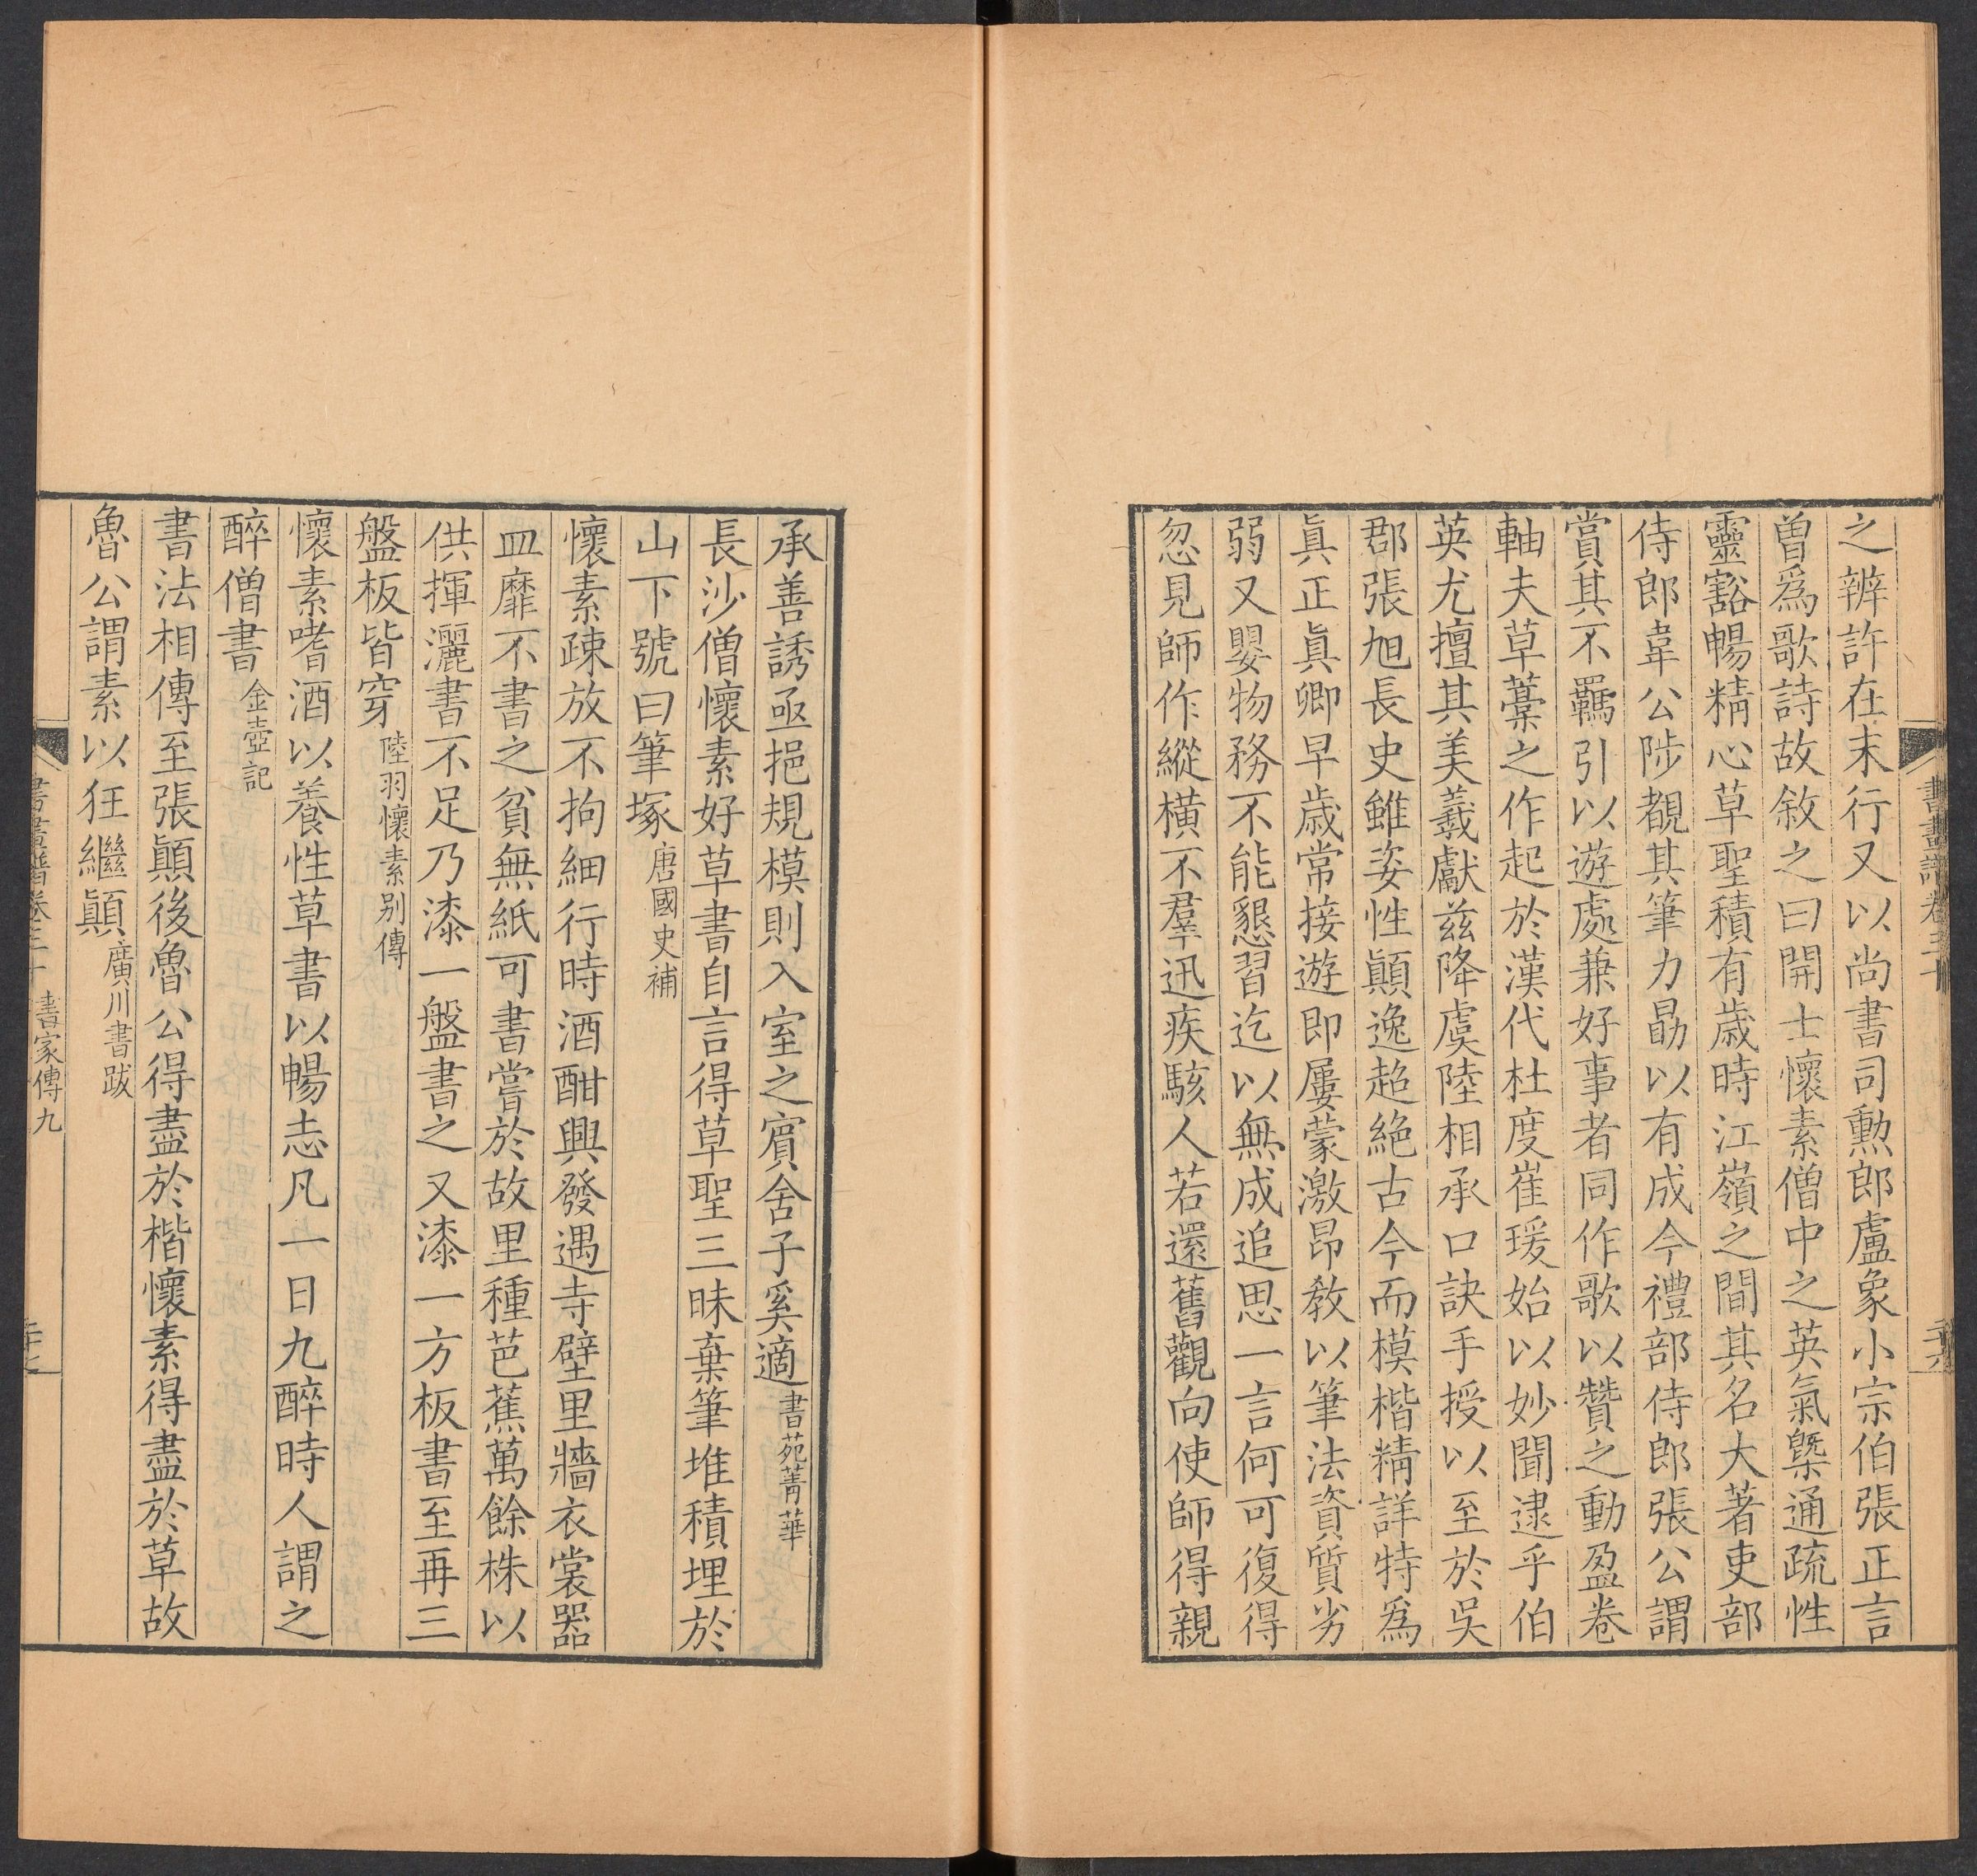 書畫譜卷三十
二十六
之辨許在末行又以尚書司勲郎盧象小宗伯張正言
曽爲歌詩故敘之曰開士懷素僧中之英氣槩通疏性
靈豁暢精心草聖積有歳時江嶺之間其名大著吏部
侍郎韋公陟覩其筆力勗以有成今禮部侍郎張公謂
賞其不羈引以遊處兼好事者同作歌以贊之動盈卷
軸夫草藁之作起於漢代杜度崔瑗始以妙聞逮乎伯
英尤擅其美羲獻兹降虞陸相承口訣手授以至於吳
郡張旭長史雖姿性顚逸超絶古今而模楷精詳特爲
眞正眞卿早歳常接遊即屢蒙激昂教以筆法資質劣
弱又嬰物務不能懇習迄以無成追思一言何可復得
忽見師作縱橫不羣迅疾駭人若還舊觀向使師得親
承善誘亟挹規模則入室之賓舍子奚適書苑菁華
長沙僧懷素好草書自言得草聖三昧棄筆堆積埋於
山下號曰筆塚唐國史補
懷素疎放不拘細行時酒酣興發遇寺壁里牆衣裳器
皿靡不書之貧無紙可書嘗於故里種芭蕉萬餘株以
供揮灑書不足乃漆一盤書之又漆一方板書至再三
盤板皆穿陸羽懷素别傳
懷素嗜酒以養性草書以暢志凡一日九醉時人謂之
醉僧書金壺記
書法相傳至張顚後魯公得盡於楷懷素得盡於草故
魯公謂素以狂繼顚廣川書跋
書畫譜卷三十 書家傳九
二十七